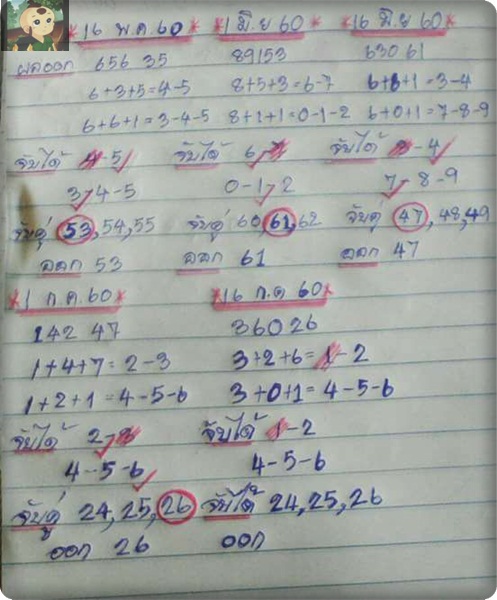 *16 พ.ค. 60* *1 มิ.ย 60 *16 มิ.ย 60*
ผลออก 656 35 89153 630 61
6+3+5=4-5 8+5+3=6-7 6+6+1=3-4
6+6+1=3-4-5 8+1+1=0-1-2 6+0+1=7-8-9
จับได้ 4-5 จับได้ 6,7 จับได้ 3-4
3-4-5 0-1-2 7-8-9
จับคู่ 53,54,55 จับคู่ 60 61,62 จับคู่ 47,48,49
ออก 53 ออก 61 ออก 47
*1 ก.ค. 60* *16 ก.ค 60*
142 47 360 26
1+4+7=2-3 3+2+6=1-2
1+2+1=4-5-6 3+0+1=4-5-6
จับได้ 2-3 จับได้ 1-2
4-5-6 4-5-6
จับคู่ 24,25,26 จับได้ 24,25,26
ออก 26 ออก